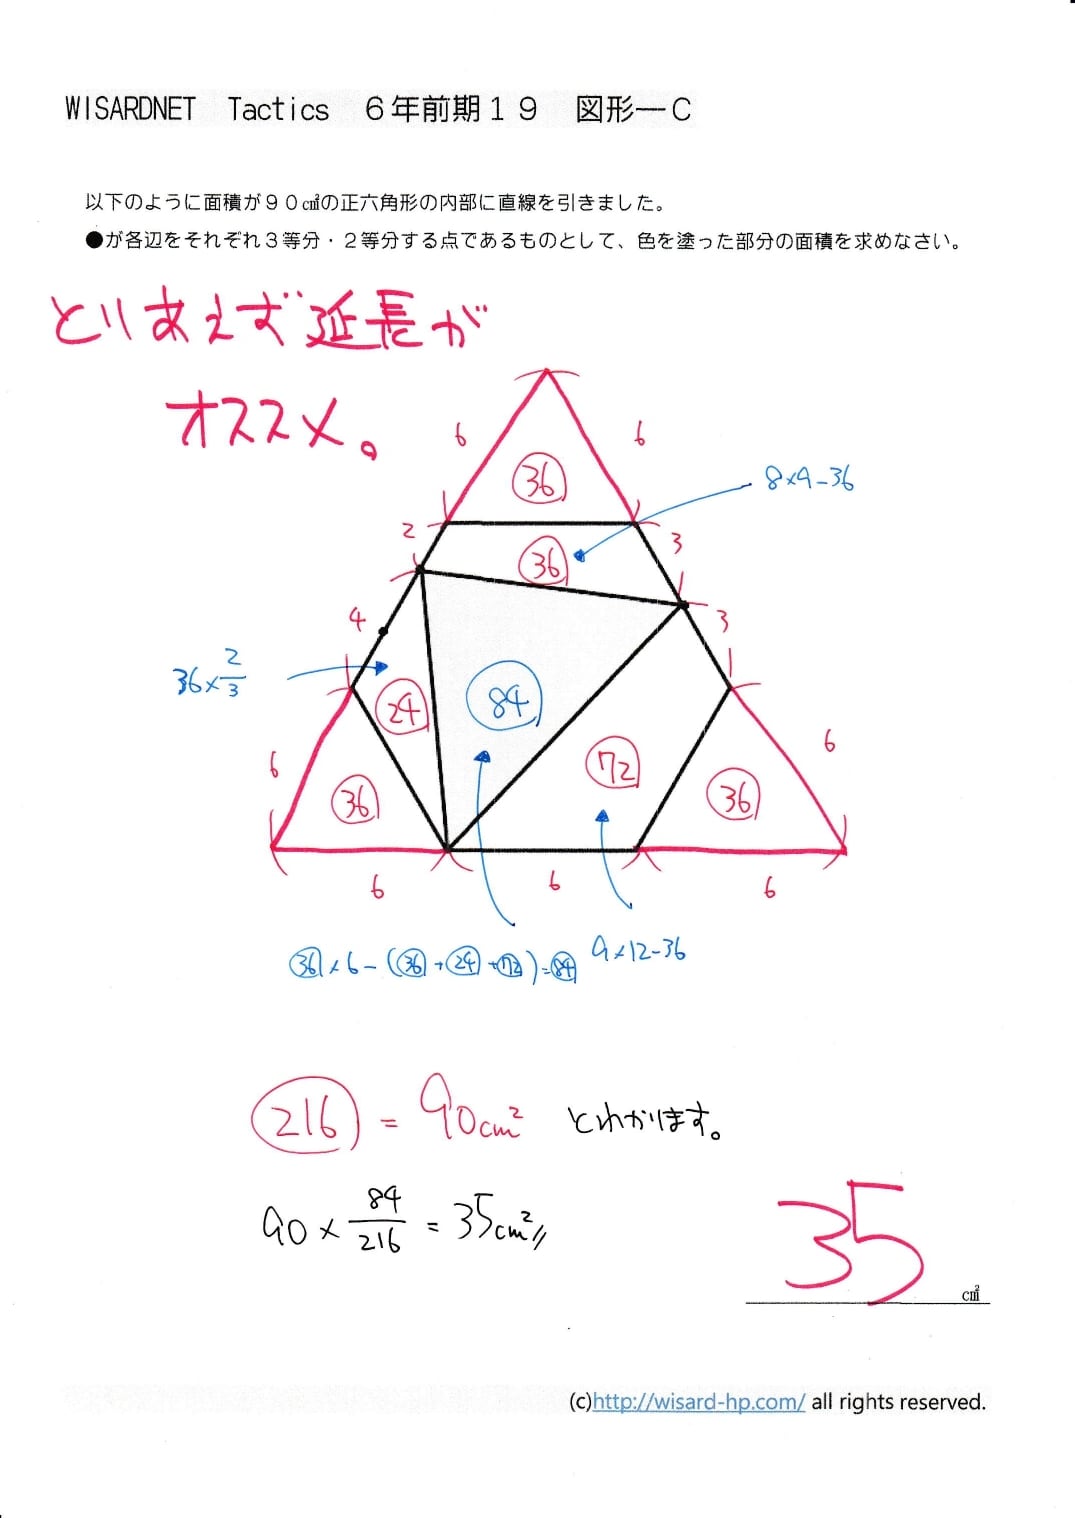 WISARDNET Tactics 6年前期19 図形―C
以下のように面積が90㎠の正六角形の内部に直線を引きました。
●が各辺をそれぞれ3等分・2等分する点であるものとして、色を塗った部分の面積を求めなさい。
とりあえず延長が
オススメ。
6
6
36
8×9-36
2
36
3
4
3
36×2/3
24
84
6
72
6
36
36
6
6
6
36×6-(36+24+72)=84
9×12-36
216 = 90cm² とわかります。
90 × 84/216 = 35cm²〃
35 ㎠
(c)http://wisard-hp.com/ all rights reserved.